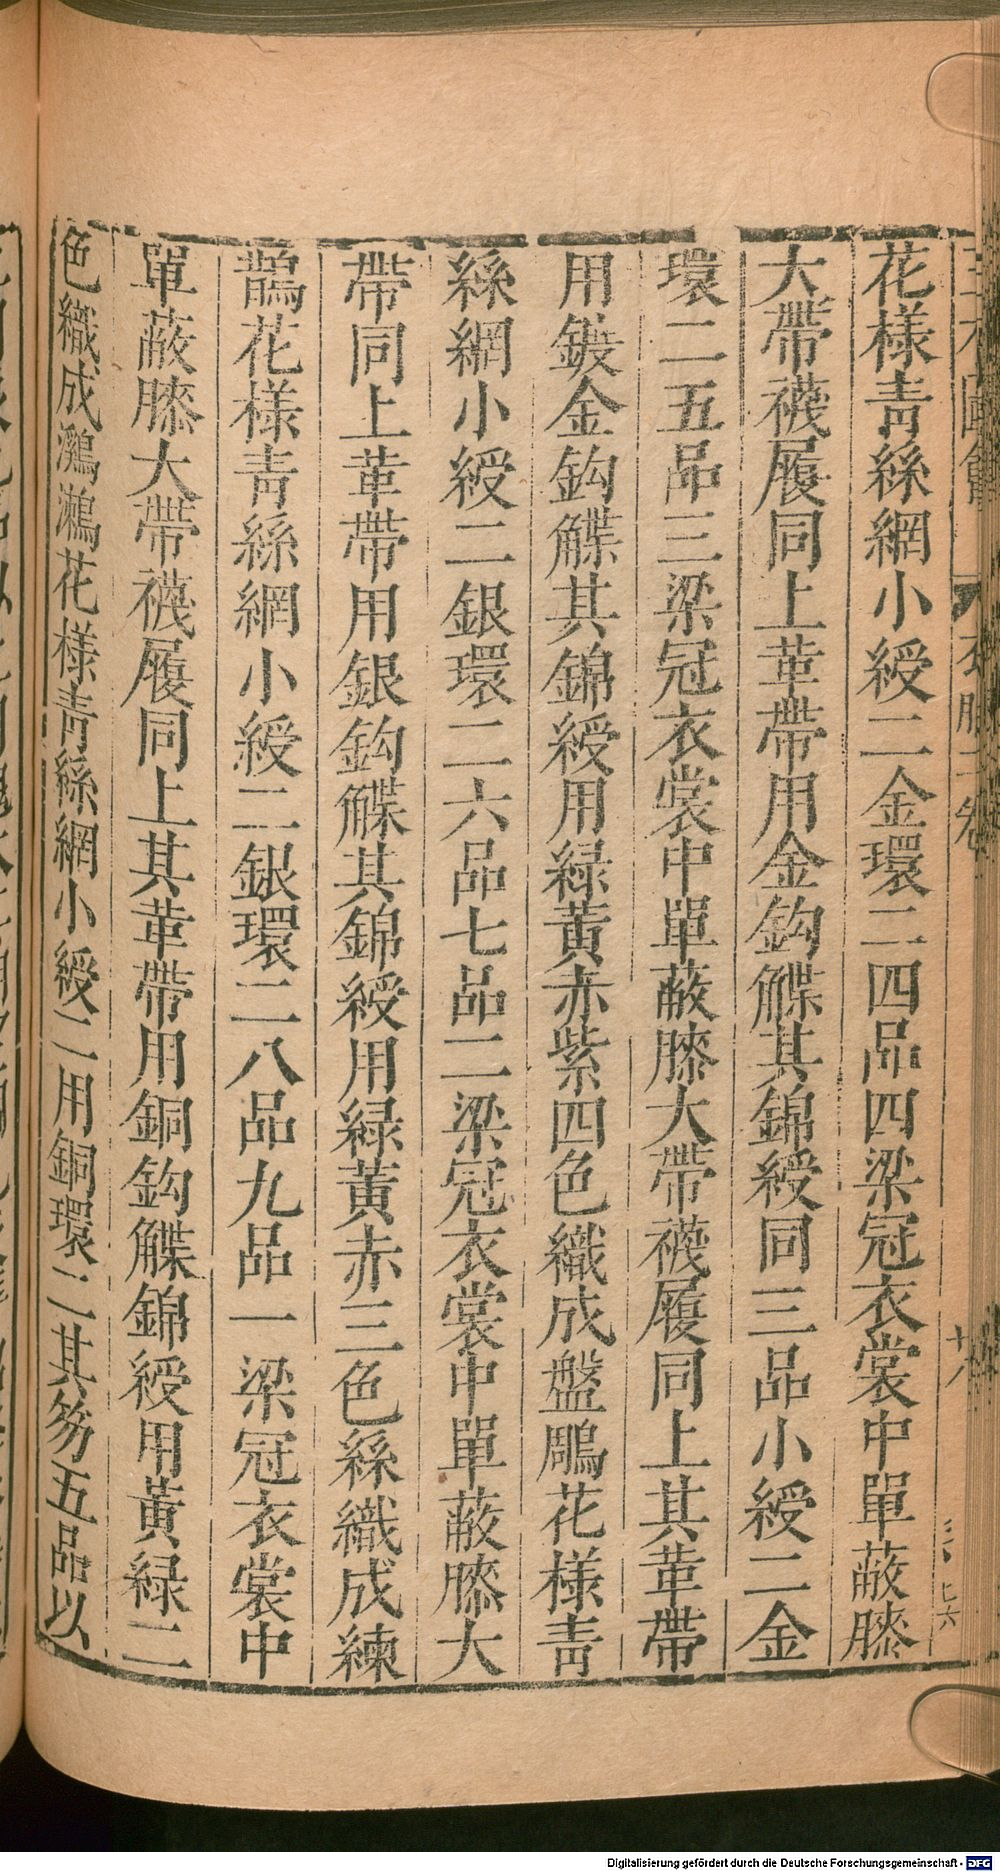 衣服二卷
十八
花樣青絲網小綬二金環二四品四梁冠衣裳中單蔽膝
大帶襪履同上革帶用金鈎䚢其錦綬同三品小綬二金
環二五品三梁冠衣裳中單蔽膝大帶襪履同上其革帶
用鍍金鈎䚢其錦綬用綠黃赤紫四色織成盤鵰花樣青
絲網小綬二銀環二六品七品二梁冠衣裳中單蔽膝大
帶同上革帶用銀鈎䚢其錦綬用綠黃赤三色絲織成練
鵲花樣青絲網小綬二銀環二八品九品一梁冠衣裳中
單蔽膝大帶襪履同上其革帶用銅鈎䚢錦綬用黃綠二
色織成鸂鶒花樣青絲網小綬二用銅環二其笏五品以
Digitalisierung gefördert durch die Deutsche Forschungsgemeinschaft - DFG